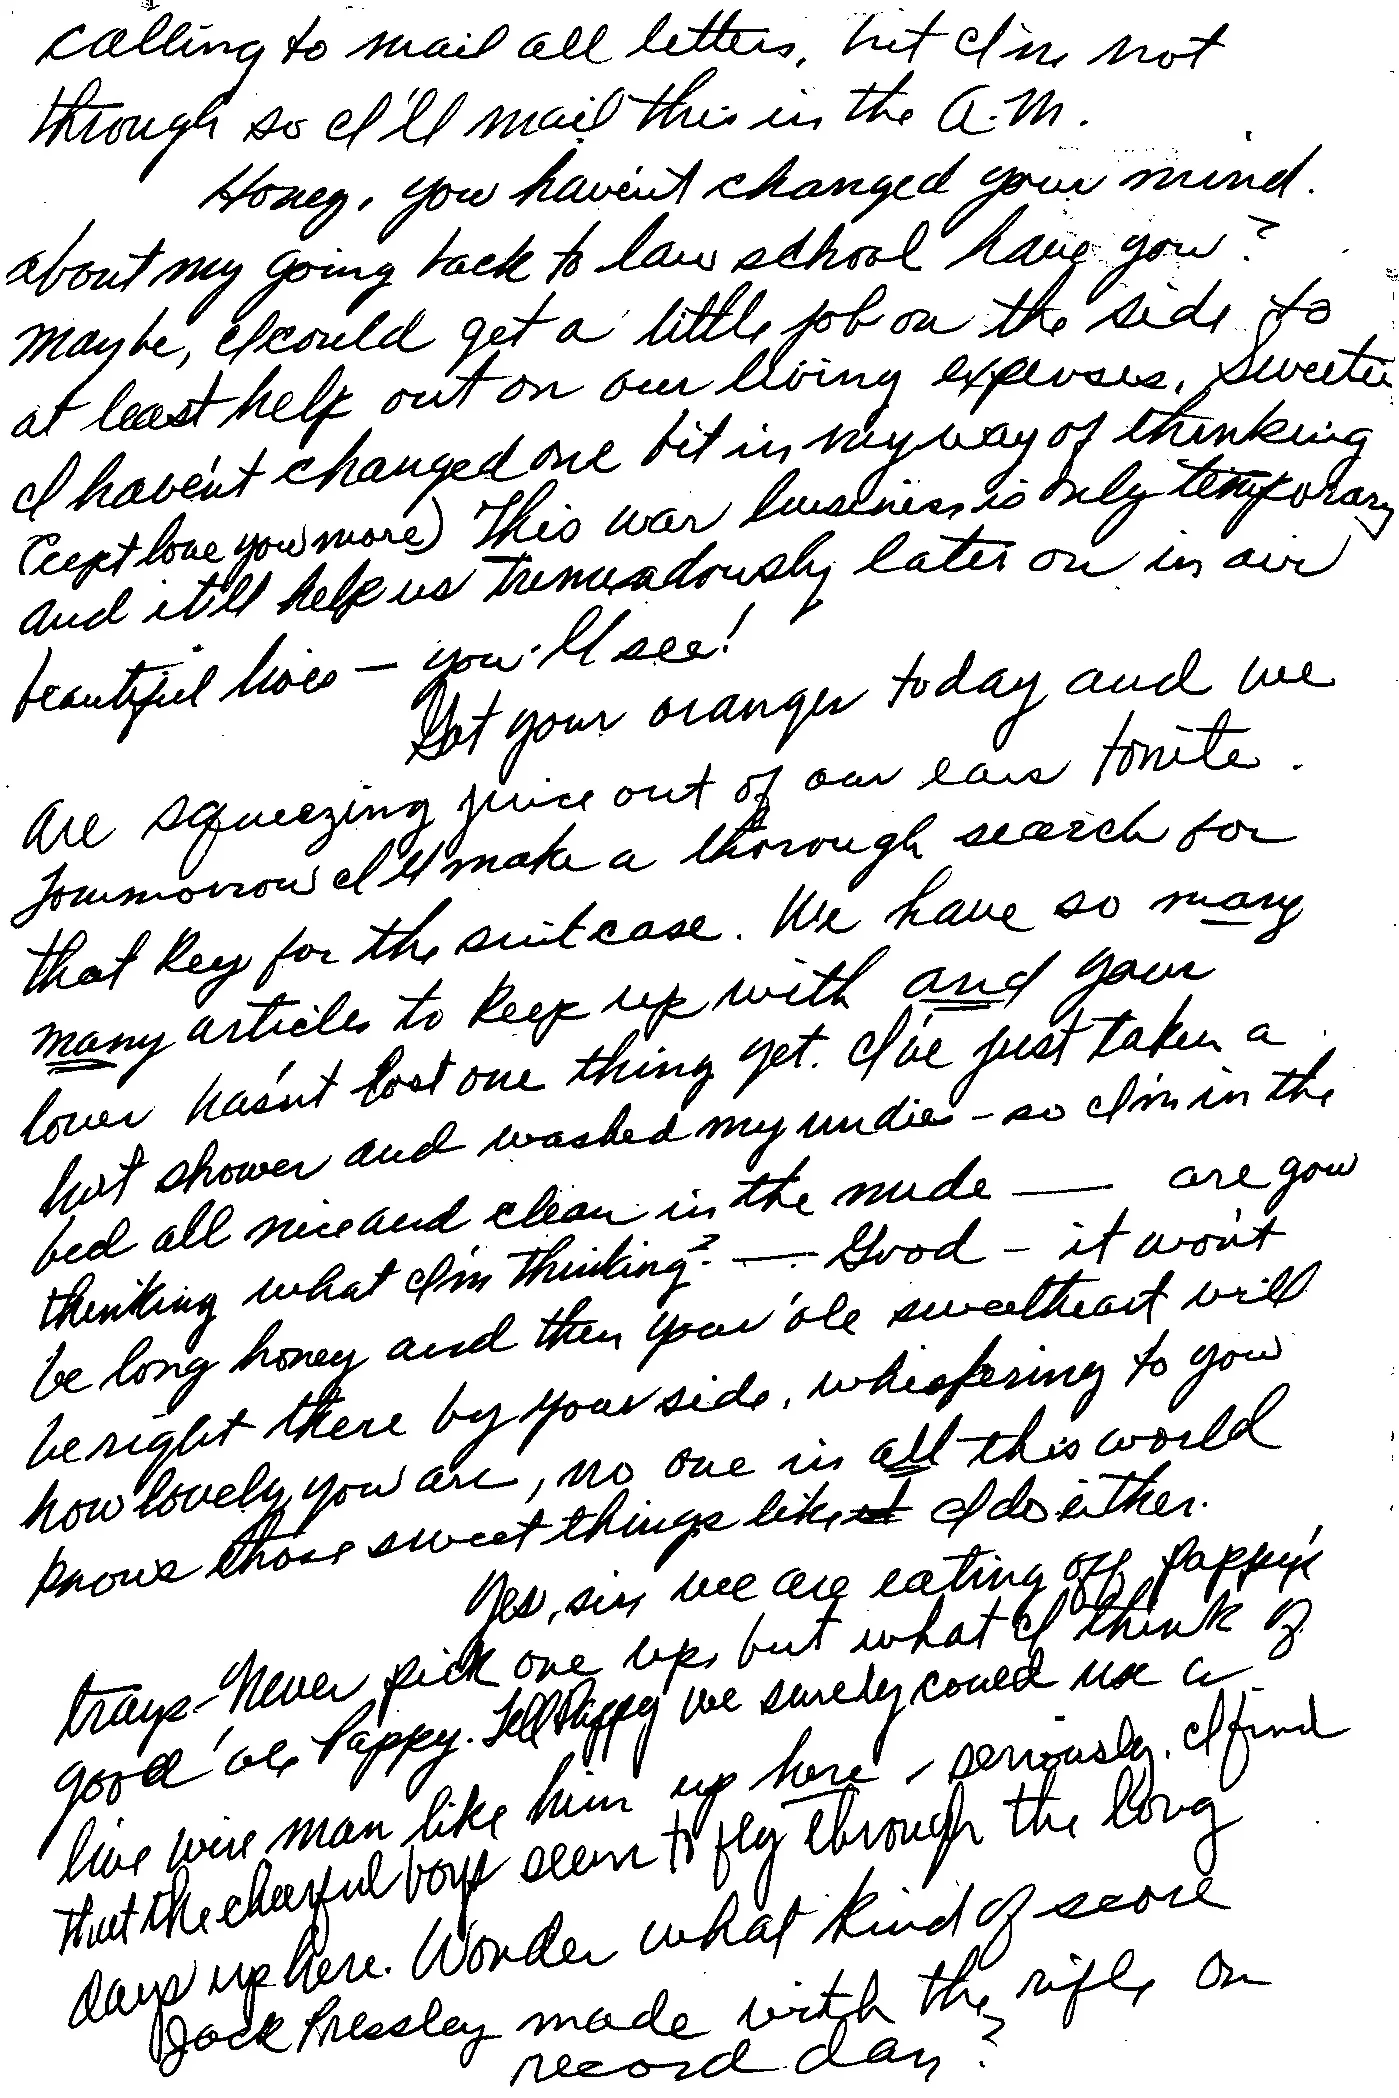 calling to mail all letters, but I'm not
through so I'll mail this in the A.M.
Honey, you haven't changed your mind.
about my going back to law school have you?
maybe, I could get a little job on the side to
at least help out on our living expenses. Sweetie
I haven't changed one bit in my way of thinking
('cept love you more) This war business is only temporary
and it'll help us tremendously later on in our
beautiful lives — you'll see!
Got your oranges today and we
are squeezing juice out of our ears tonite.
Tommorrow I'll make a thorough search for
that key for the suitcase. We have so many
many articles to keep up with and your
lover hasn't lost one thing yet. I've just taken a
hot shower and washed my undies - so I'm in the
bed all nice and clean in the nude — are you
thinking what I'm thinking? — Good - it won't
be long honey and then your 'ole sweetheart will
be right there by your side, whispering to you
how lovely you are, no one in all this world
knows those sweet things like I do either.
Yes, sir we are eating off Pappy's
trays - Never pick one up, but what I think of
good 'ole Pappy. Tell Pappy we surely could use a
live wire man like him up here, seriously. I find
that the cheerful boys seem to fly through the long
days up here. Wonder what kind of score
Jack Pressley made with the rifle on
record day?